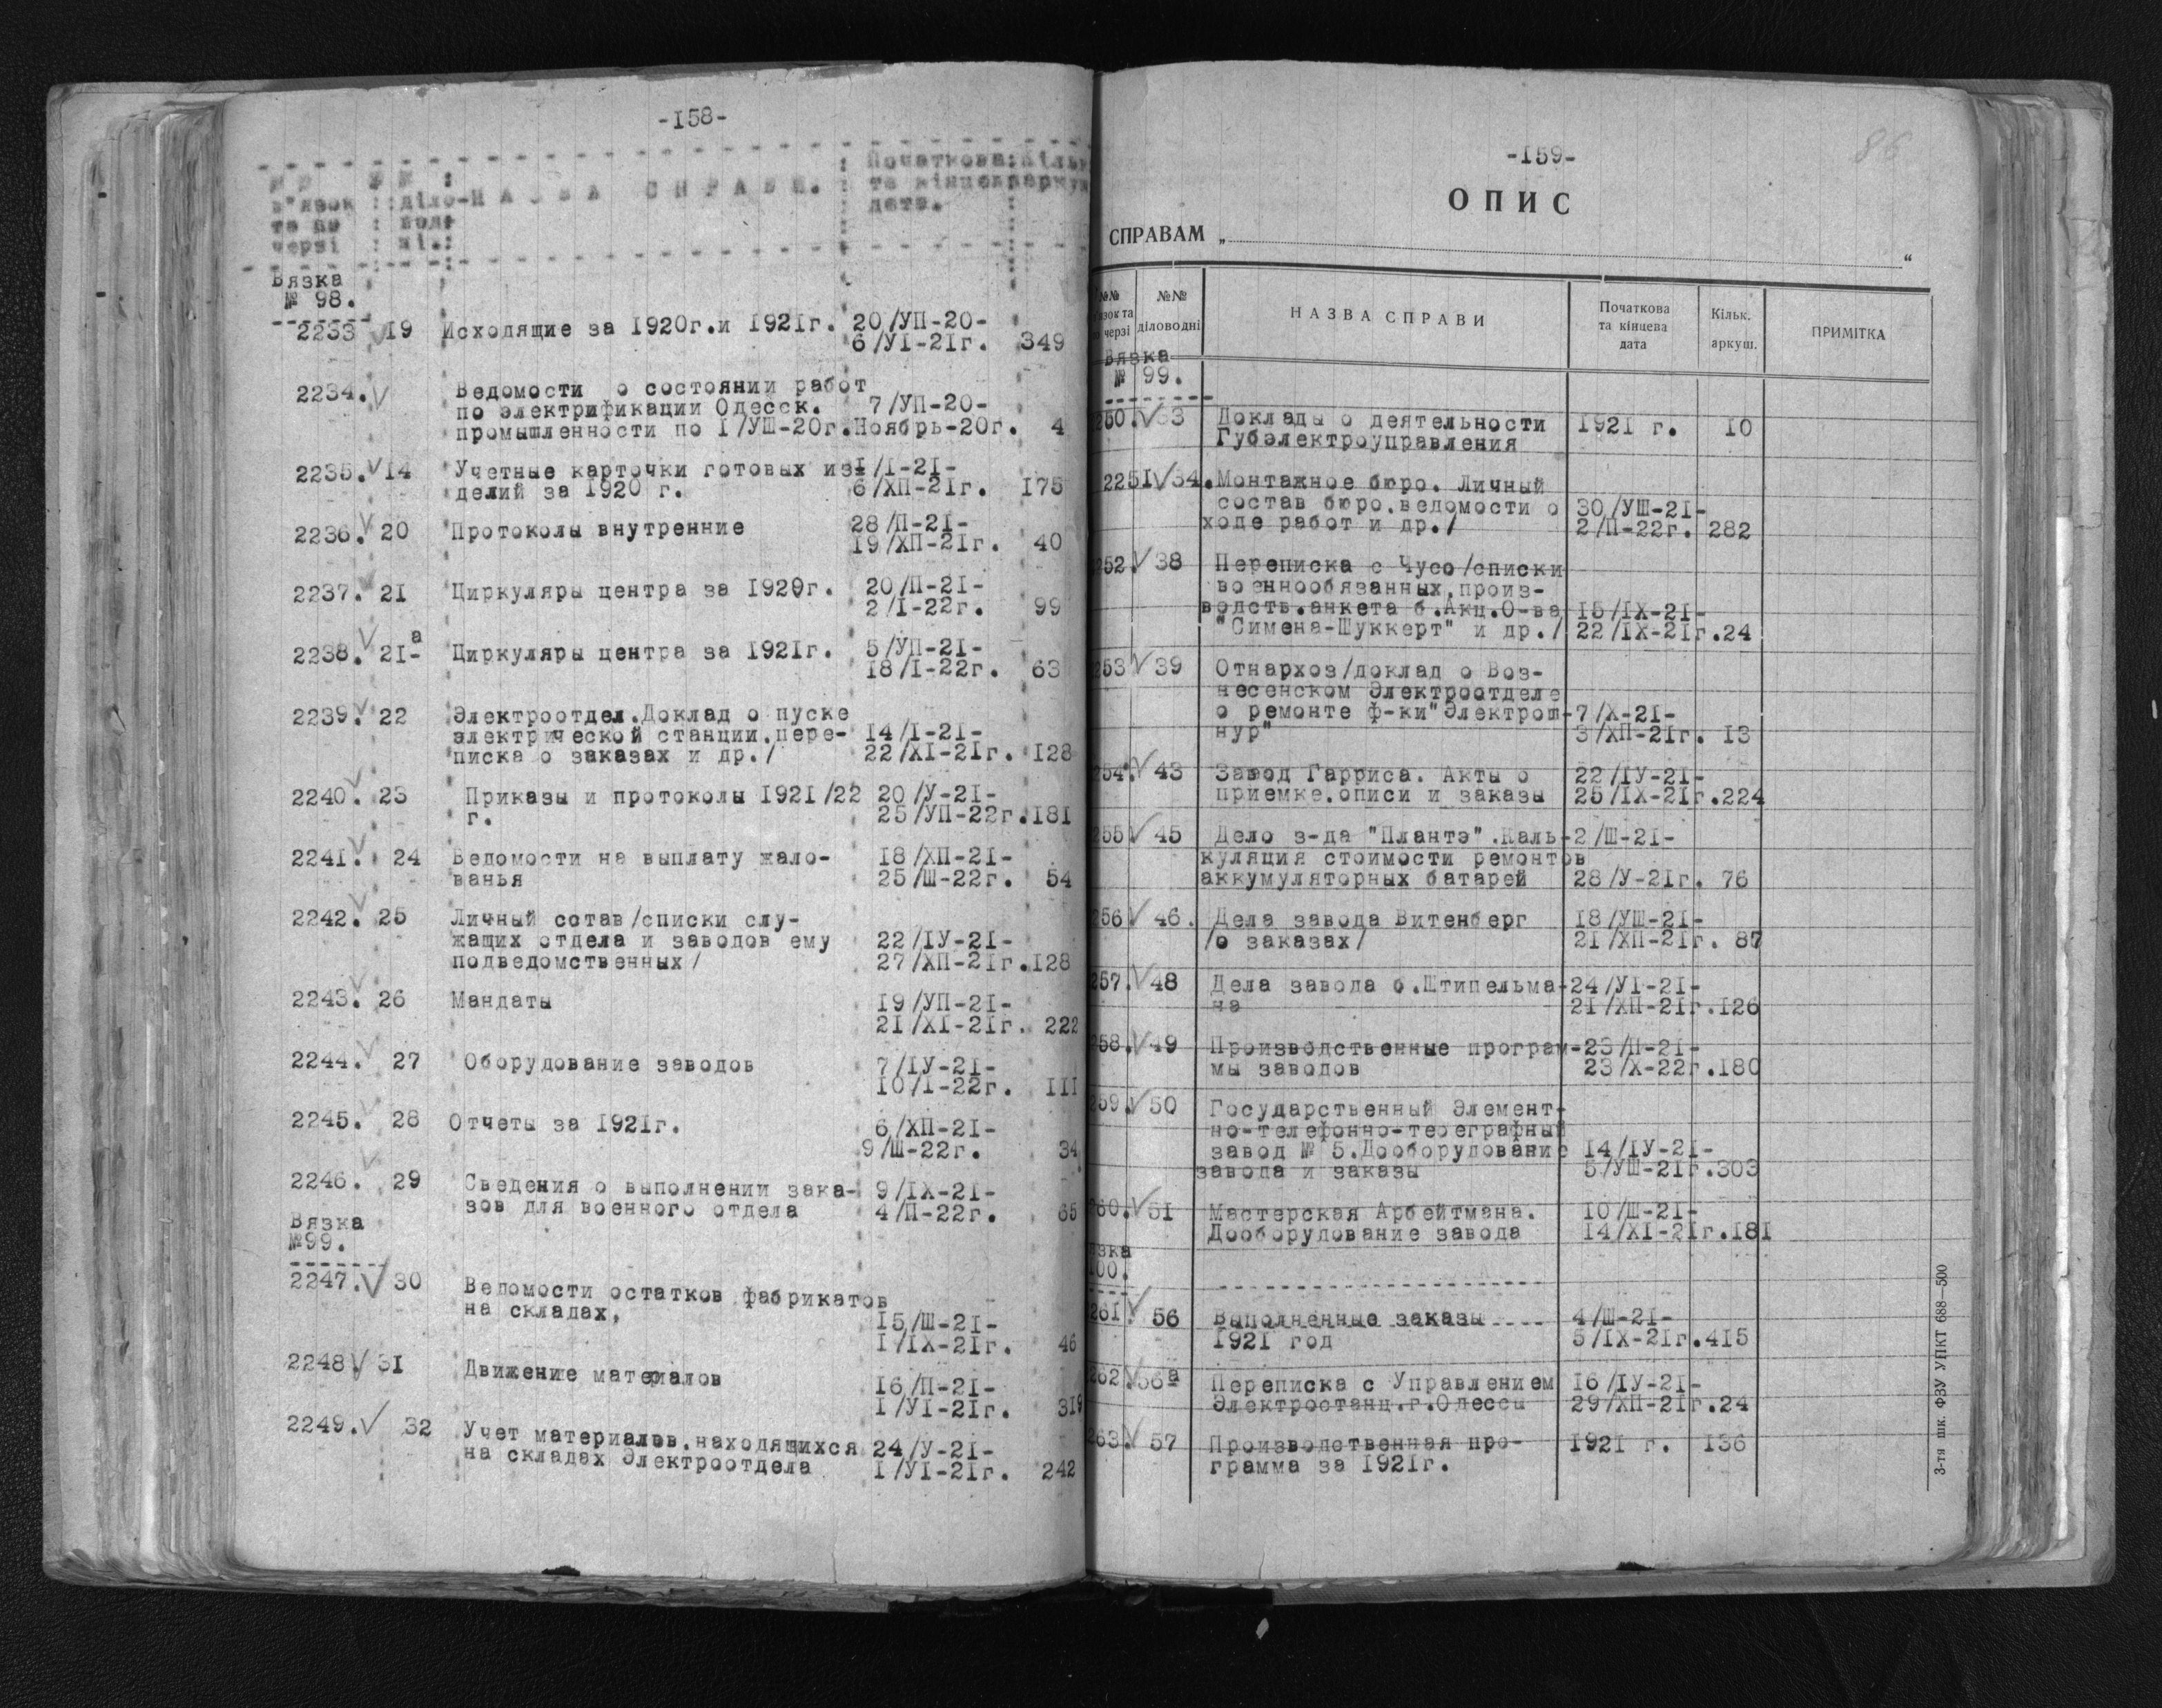 -158-
№№ №№ Початкова Кільк
в"язок діло- НАЗВА СПРАВИ. та кінцев аркуш
та по вод- дата.
черзі ні.
Вязка
№ 98.
2233 19 Исходящие за 1920г.и 1921г. 20/УП-20-
6/УI-21г. 349
2234. Ведомости о состоянии работ
по электрификации Одесск. 7/УП-20-
промышленности по I/УШ-20г. Ноябрь-20г. 4
2235. 14 Учетные карточки готовых из I/I-21-
делий за 1920 г. 6/ХП-21г. 175
2236. 20 Протоколы внутренние 28/П-21-
19/ХП-21г. 40
2237. 21 Циркуляры центра за 1920г. 20/П-21-
2/I-22г. 99
2238. 21-а Циркуляры центра за 1921г. 5/УП-21-
18/I-22г. 63
2239. 22 Электроотдел.Доклад о пуске
электрической станции,пере- 14/I-21-
писка о заказах и др./ 22/ХI-21г. 128
2240. 23 Приказы и протоколы 1921/22 20/У-21-
г. 25/УП-22г. 181
2241. 24 Ведомости на выплату жало- 18/ХП-21-
ванья 25/Ш-22г. 54
2242. 25 Личный сотав/списки слу-
жащих отдела и заводов ему 22/IУ-21-
подведомственных/ 27/ХП-21г. 128
2243. 26 Мандаты 19/УП-21-
21/ХI-21г. 222
2244. 27 Оборудование заводов 7/IУ-21-
10/I-22г. 111
2245. 28 Отчеты за 1921г. 6/ХП-21-
9/Ш-22г. 34
2246. 29 Сведения о выполнении зака- 9/IХ-21-
зов для военного отдела 4/П-22г. 65
Вязка
№99.
2247. 30 Ведомости остатков фабрикатов
на складах, 15/Ш-21-
I/IХ-21г. 46
2248 31 Движение материалов 16/П-21-
I/УI-21г. 319
2249. 32 Учет материалов,находящихся 24/У-21-
на складах Электроотдела I/УI-21г. 242
86
-159-
ОПИС
СПРАВАМ „ “
№№ №№ НАЗВА СПРАВИ Початкова Кільк. ПРИМІТКА
язок та діловодні та кінцева аркуш.
черзі дата
Вязка
№ 99.
250. 33 Доклады о деятельности 1921 г. 10
Губэлектроуправления
2251 34. Монтажное бюро. Личный
состав бюро,ведомости о 30/УШ-21-
ходе работ и др./ 2/П-22г. 282
252. 38 Переписка с Чусо/списки
военнообязанных,произ-
водств.анкета б.Акц.О-ва 15/IХ-21-
"Симена-Шуккерт" и др./ 22/IХ-21г. 24
253 39 Отнархоз/доклад о Воз-
несенском Электроотделе
о ремонте ф-ки"Электрош- 7/Х-21-
нур" 3/ХП-21г. 13
254. 43 Завод Гарриса. Акты о 22/IУ-21-
приемке,описи и заказы 25/IХ-21г. 224
255 45 Дело з-да "Плантэ".Каль- 2/Ш-21-
куляция стоимости ремонтов
аккумуляторных батарей 28/У-21г. 76
256 46. Дела завода Витенберг 18/УШ-21-
/о заказах/ 21/ХП-21г. 87
257. 48 Дела завода б.Штипельма- 24/УI-21-
на 21/ХП-21г. 126
258. 49 Производственные програм- 23/П-21-
мы заводов 23/Х-22г. 180
259. 50 Государственный Элемент-
но-телефонно-тереграфный
завод № 5.Дооборудование 14/IУ-21-
завода и заказы 5/УШ-21г. 303
260. 51 Мастерская Арбейтмана. 10/Ш-21-
Дооборудование завода 14/ХI-21г. 181
язка
100.
261. 56 Выполненные заказы 4/Ш-21-
1921 год 5/IХ-21г. 415
262. 56а Переписка с Управлением 16/IУ-21-
Электростанц.г.Одессы 29/ХП-21г. 24
263. 57 Производственная про- 1921 г. 136
грамма за 1921г.
3-тя шк. ФЗУ УПКТ 688—500